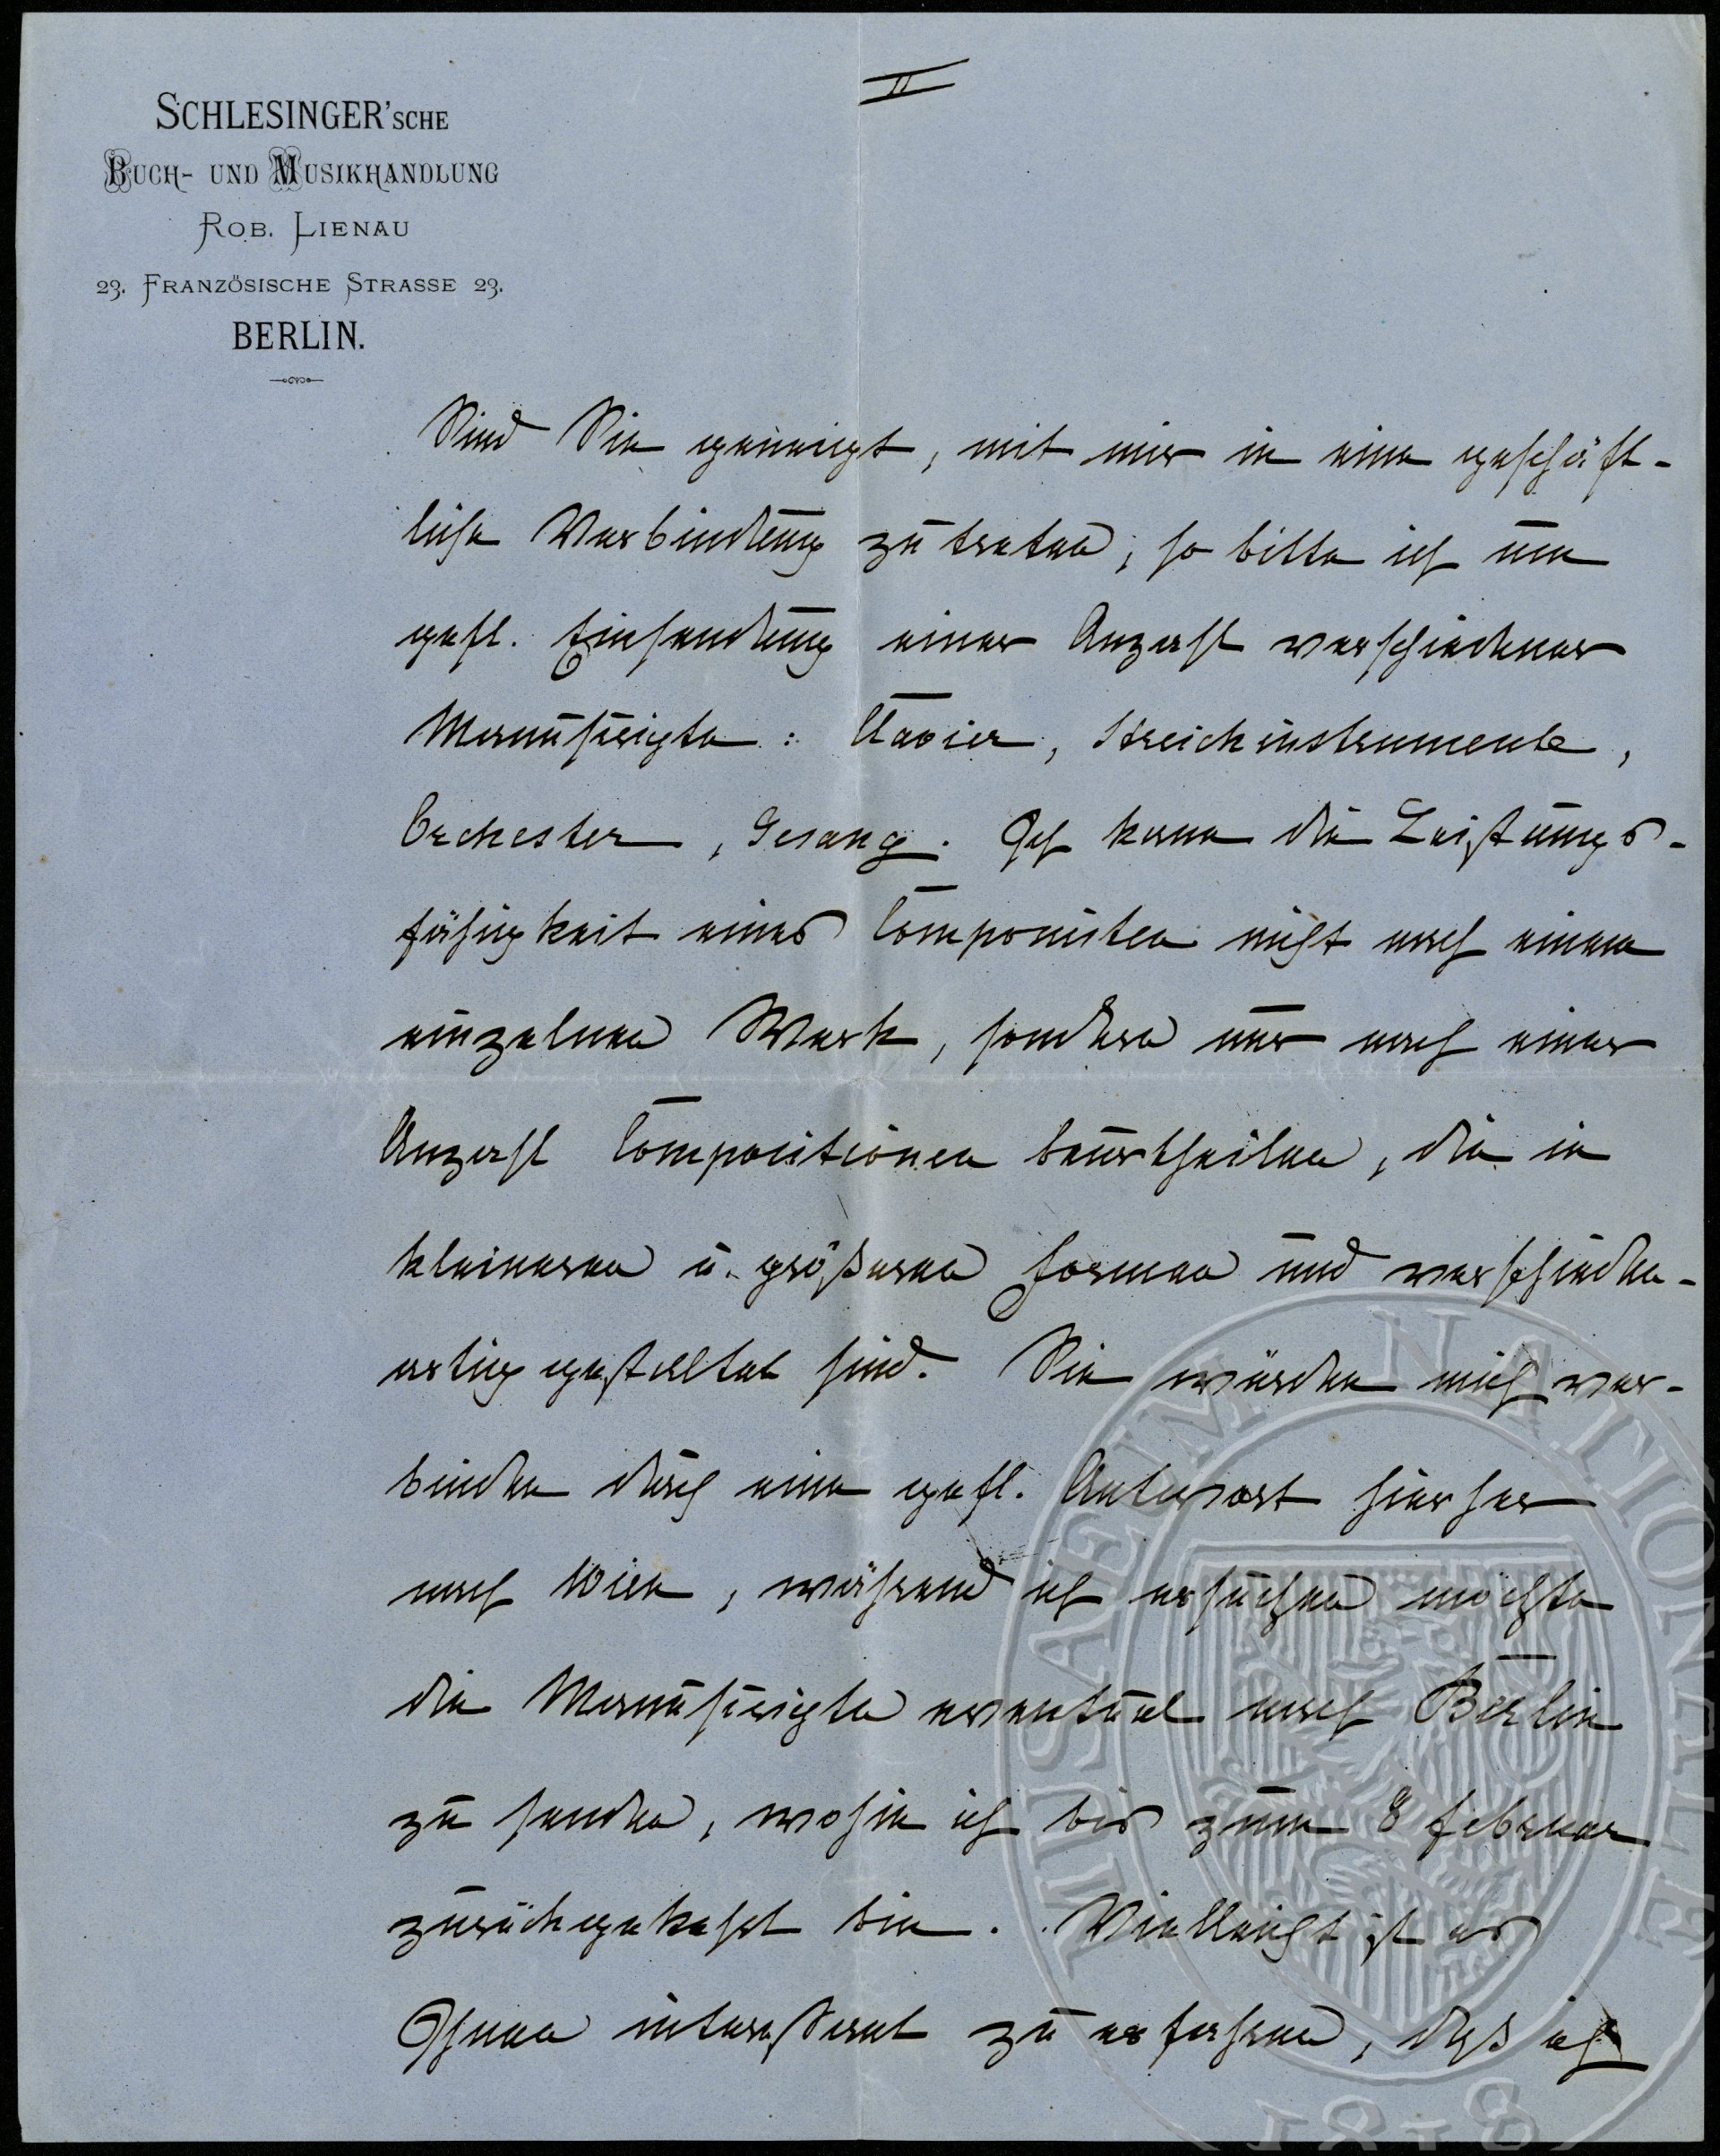 II
SCHLESINGER'SCHE
BUCH- UND MUSIKHANDLUNG
ROB. LIENAU
23. FRANZÖSISCHE STRASSE 23.
BERLIN.
Sind Sie geneigt, mit mir in eine geschäft-
liche Verbindung zu treten, so bitte ich um
gefl. Einsendung einer Anzahl verschiedener
Manuscripte: Clavier, Streichinstrumente,
Orchester, Gesang. Ich kann die Leistungs-
fähigkeit eines Componisten nicht nach einem
einzelnen Werk, sondern nur nach einer
Anzahl Compositionen beurtheilen, die in
kleineren u. größeren Formen und verschieden-
artig gestaltet sind. Sie würden mich ver-
binden durch eine gefl. Antwort hierher
nach Wien, während ich ersuchen möchte
die Manuscripte eventuel nach Berlin
zu senden, wohin ich bis zum 8 Februar
zurückgekehrt bin. Vielleicht ist es
Ihnen interessant zu erfahren, daß ich
MUSAEUM NATIONALE
1818